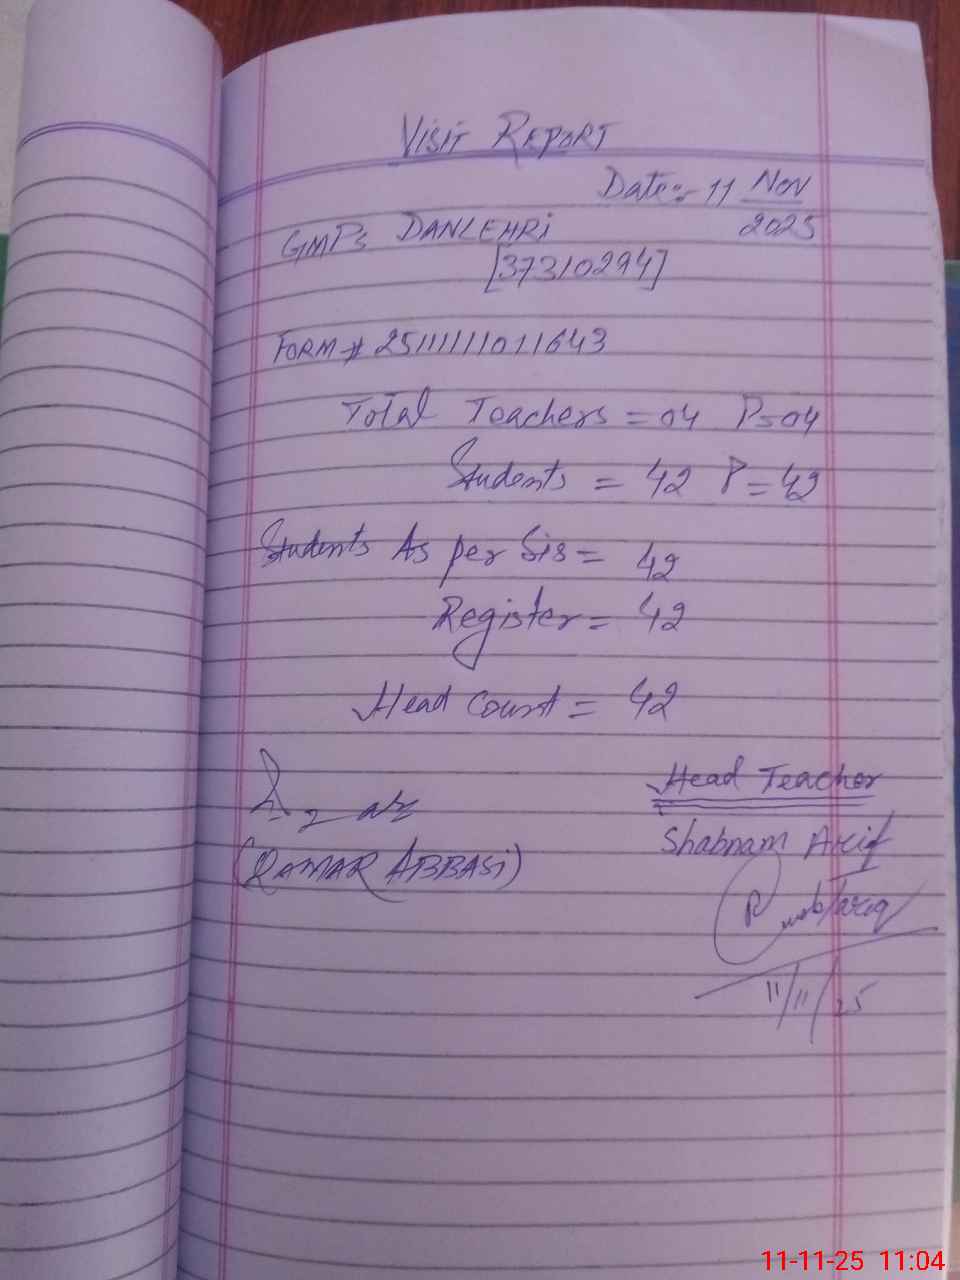 VISIT REPORT
Date:- 11 Nov
2025
GMPS DANLEHRI
[37310294]
FORM # 25111111011643
Total Teachers = 04 P=04
Students = 42 P=42
Students As per Sis = 42
Register = 42
Head Count = 42
Head Teacher
Shabnam Arif
(QAMAR ABBASI)
11/11/25
11-11-25 11:04